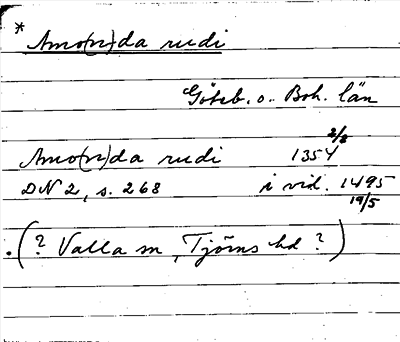 *
Amo(n)da rudi
Göteb. o. Boh. län
2/8
Amo(n)da rudi 1354
DN 2, s. 268 i vid. 1495
19/5
. (? Valla sn, Tjörns hd ?)